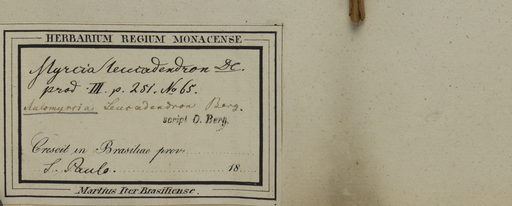 HERBARIUM REGIUM MONACENSE
Myrcia leucadendron DC.
prod. III. p. 251. No 65.
Aulomyrcia Leucadendron Berg.
script O. Berg.
Crescit in Brasiliae prov.
S. Paulo. 18
Martius Iter Brasiliense.